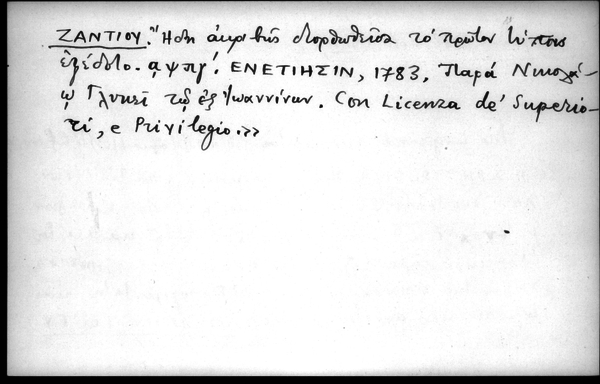 ΖΑΝΤΙΟΥ. Ἤδη ἀκριβῶς διορθωθεῖσα τὸ πρῶτον τύποις
ἐξέδοτο. αψπγ΄. ΕΝΕΤΙΗΣΙΝ, 1783, Παρὰ Νικολά-
ῳ Γλυκεῖ τῷ ἐξ Ἰωαννίνων. Con Licenza de' Superio-
ri, e Privilegio.>>